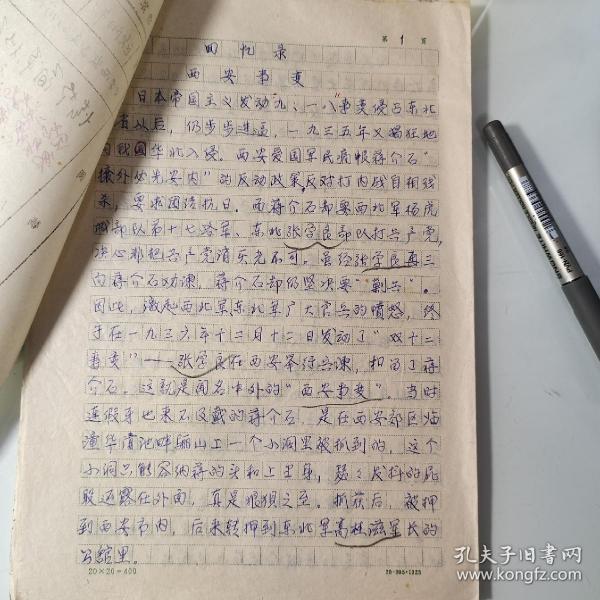 第 1 页
回忆录
西安事变
日本帝国主义发动"九、一八"事变侵占东北
省以后，仍步步进逼，一九三五年又猖狂地
向我国华北入侵。西安爱国军民痛恨蒋介石"
攘外必先安内"的反动政策，反对打内战自相残
杀，要求团结抗日。而蒋介石却要西北军杨虎
城部队第十七路军、东北张学良部队打共产党，
决心非把共产党消灭光不可。虽经张学良再三
向蒋介石劝谏，蒋介石却仍坚决要"剿共"。
因此，激起西北军东北军广大官兵的愤怒，终
于在一九三六年十二月十二日发动了"双十二
事变"——张学良在西安举行兵谏，扣留了蒋
介石。这就是闻名中外的"西安事变"。当时
连假牙也来不及戴的蒋介石，是在西安郊区临
潼华清池畔骊山上一个小洞里被抓到的，这个
小洞只能容纳蒋的头和上半身，瑟瑟发抖的屁
股还露在外面，真是狼狈之至。抓获后，被押
到西安市内，后来转押到东北军高桂滋军长的
公馆里。
20×20=400
孔夫子旧书网
www.kongfz.com